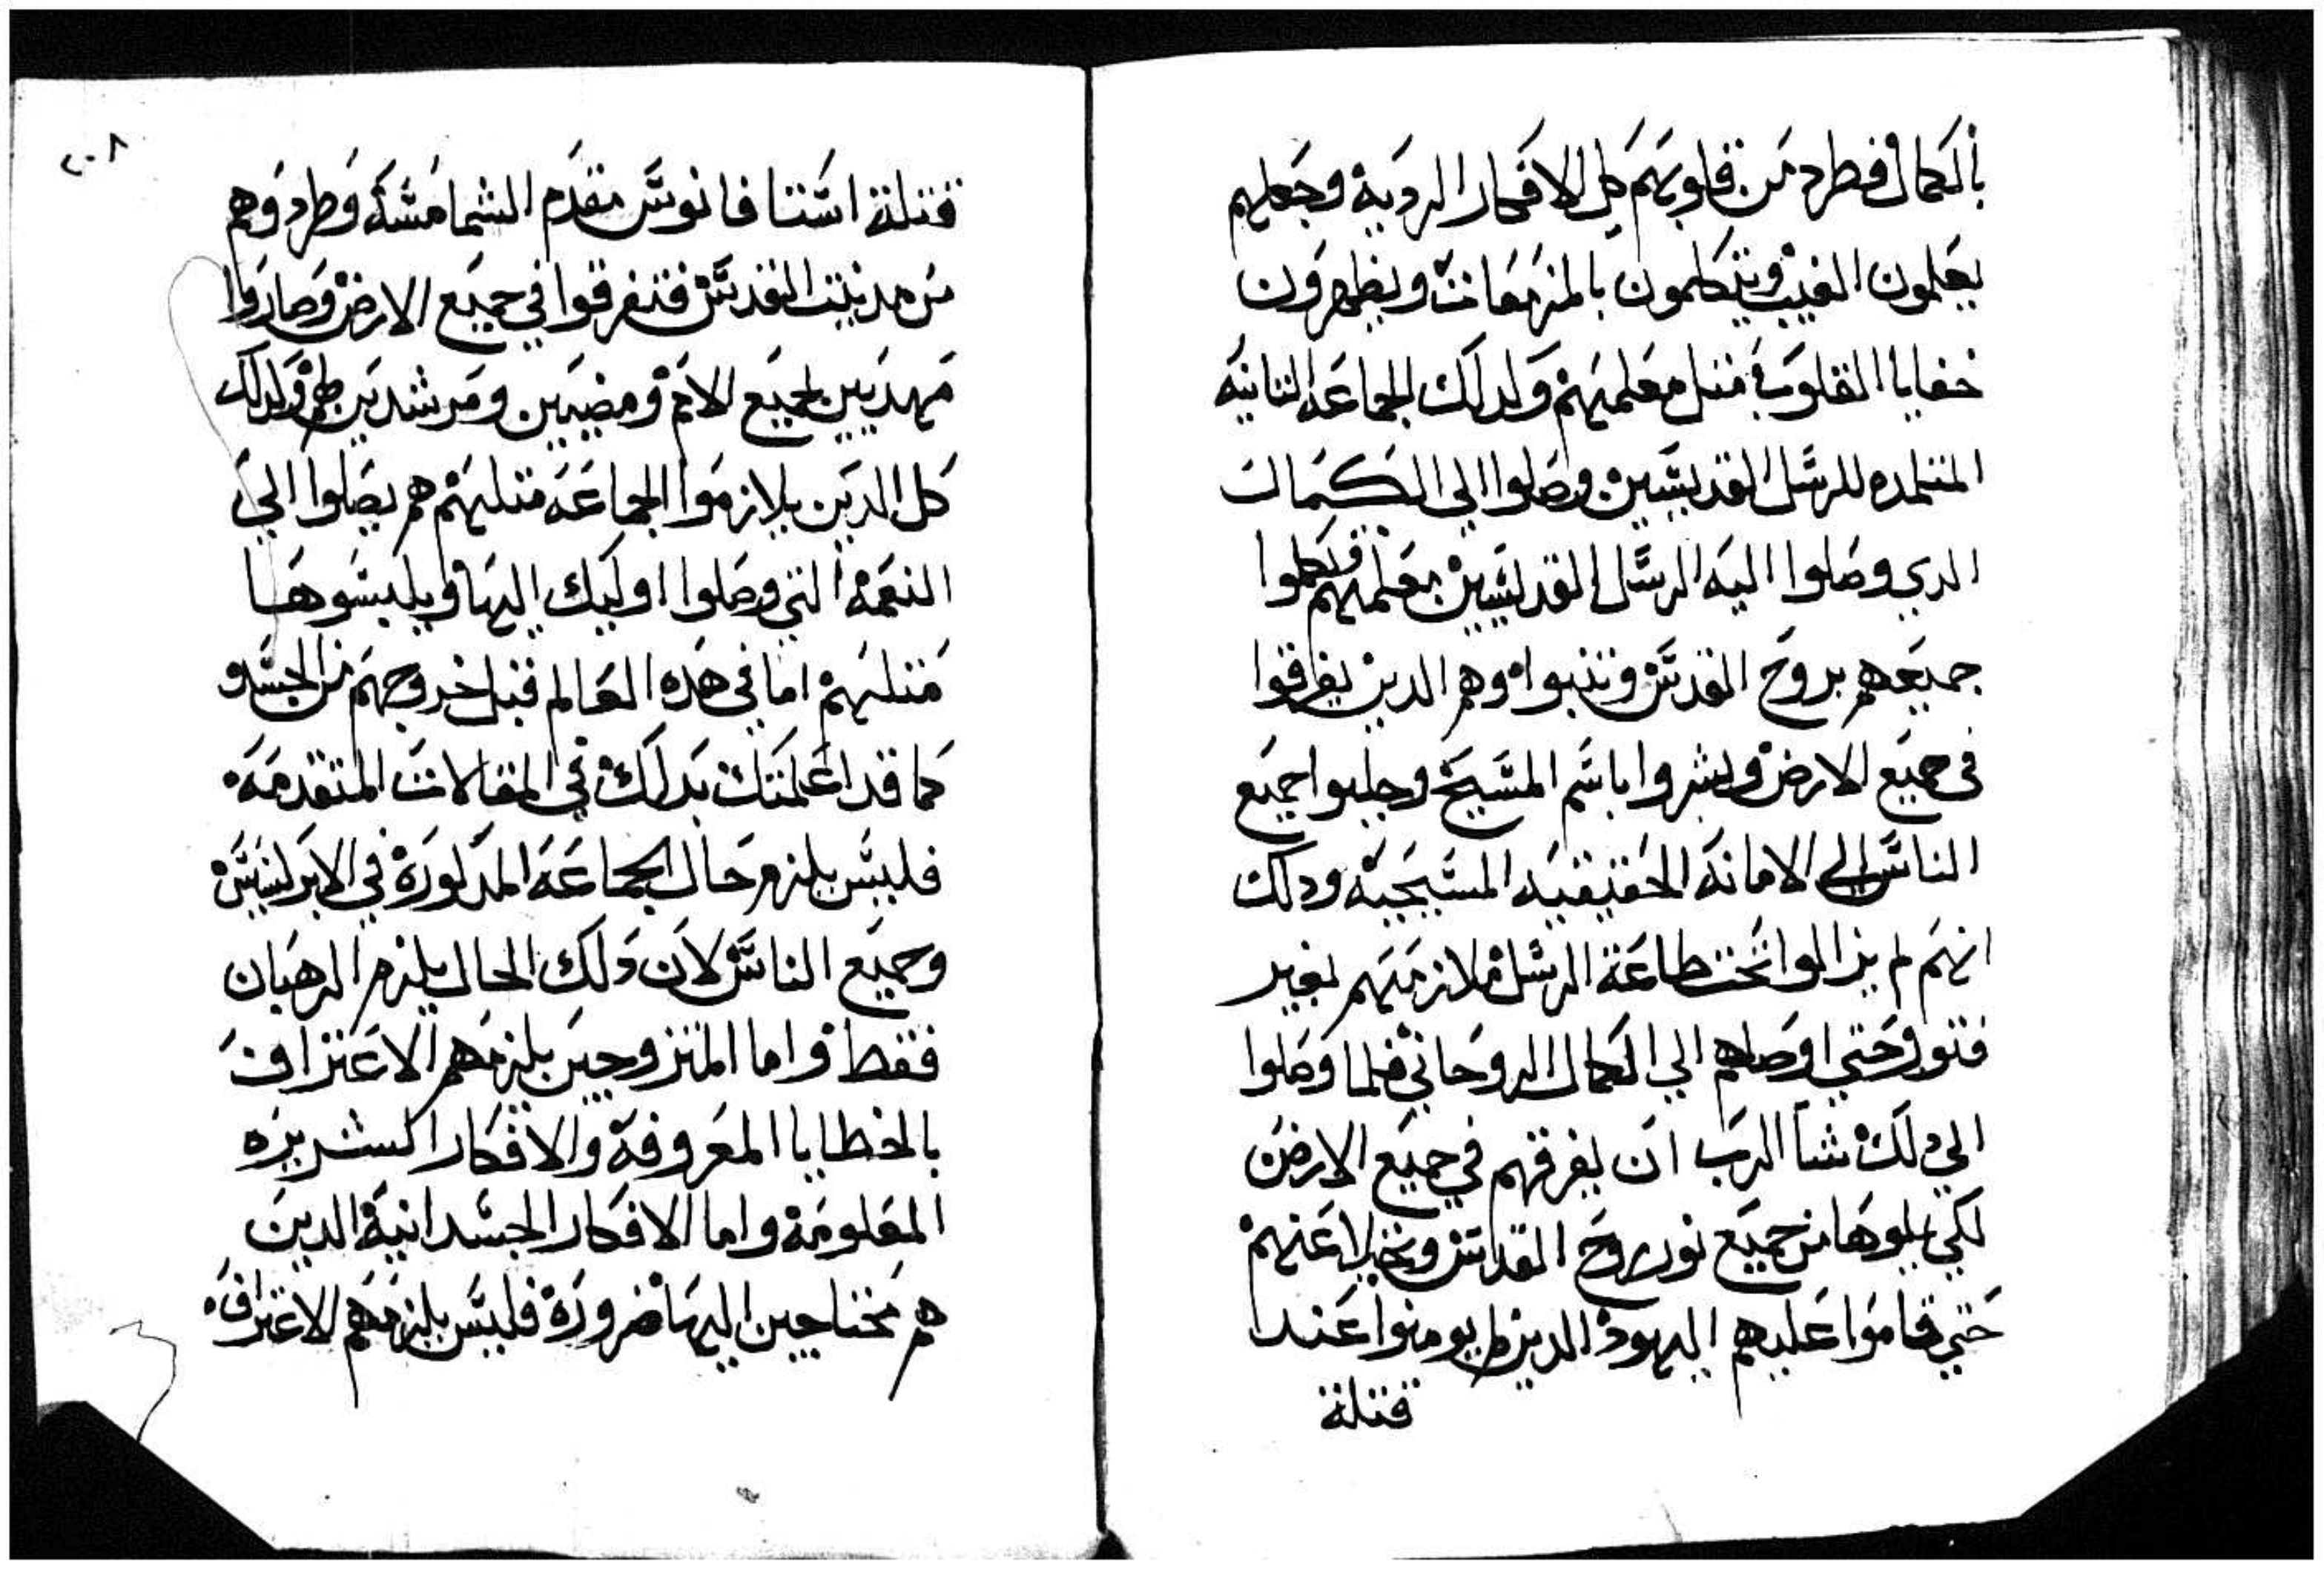 بالكمال فطرد من قلوبهم كل الافكار الرديه وجعلهم
يعلمون الغيب ويتكلمون بالمزمعات ويظهرون
خفايا القلوب مثل معلميهم ولدلك الجماعه الثانيه
المتلمده للرسل القديسين وصلوا الي الكمال
الدي وصلوا اليه الرسل القديسين معلميهم فكملوا
جميعهم بروح القدس وتنبوا وهم الدين يفرقوا
في جميع الارض وبشروا باسم المسيح وجلبوا جميع
الناس الي الامانه الحقيقيه المسيحيه ودلك
انهم لم يزالوا تحت طاعة الرسل ملازمينهم بغير
فتور حتي اوصلهم الي الكمال الروحاني فلما وصلوا
الي دلك شا الرب ان يفرقهم في جميع الارض
لكي يملوها من جميع نور روح القدس
حتي قاموا عليهم اليهود الدين لم يومنوا عند
قتلة
٢٠٨
قتلة استافانوس مقدم الشمامسة وطردوهم
من مدينت القدس فتفرقوا في جميع الارض وصاروا
مهديين لجميع الامم ومضيين ومرشدين لهم ولدلك
كل الدين يلازموا الجماعه مثلهم هم يصلوا الي
النعمة التي وصلوا اوليك اليها ويلبسوها
مثلهم اما في هده العالم قبل خروجهم من الجسد و
كما قد اعلمتك بدلك في المقالات المتقدمة
فليس يلزم حال الجماعة المدكورة في الابركسيس
وجميع الناس لان دلك الحال يلزم الرهبان
فقط واما المتزوجين يلزمهم الاعتراف
بالخطايا المعروفة والافكار الشريره
المعلومة واما الافكار الجسدانية الدين
هم محتاجين اليها ضرورة فليس يلزمهم الاعتراف